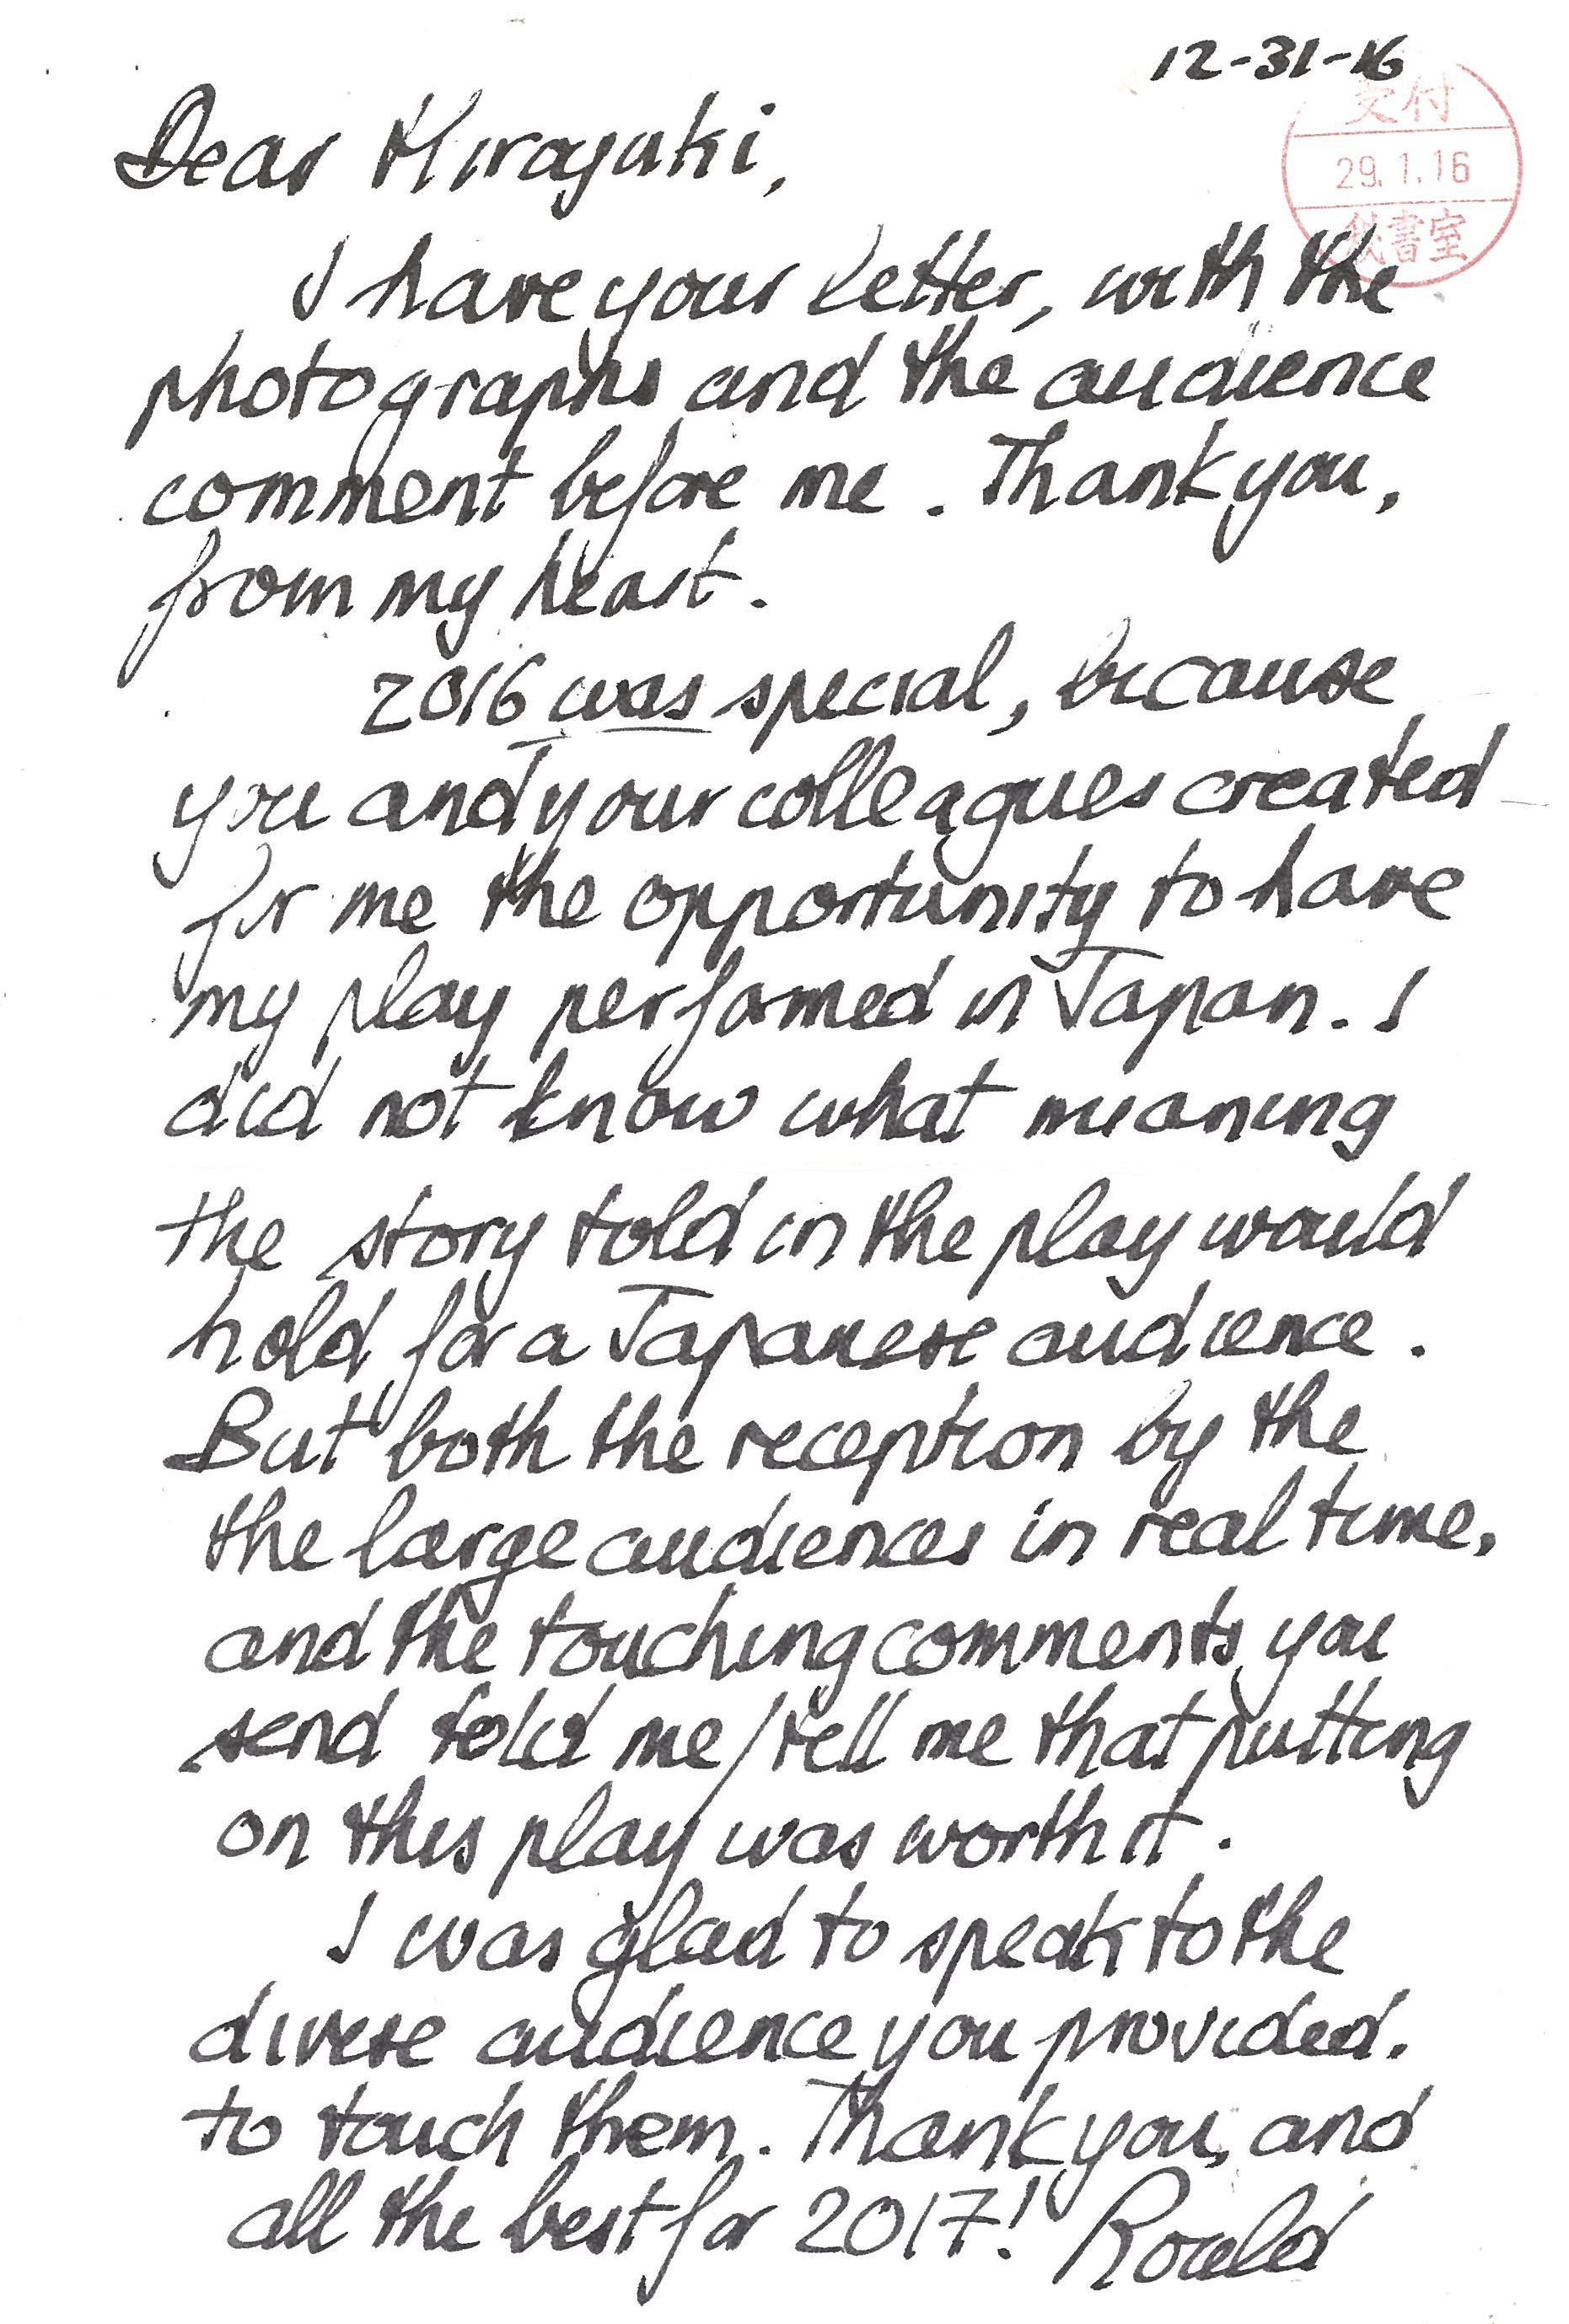 12-31-16
受付
29.1.16
秘書室
Dear Hirayuki,
I have your letter, with the
photographs and the audience
comment before me. Thank you,
from my heart.
2016 was special, because
you and your colleagues created
for me the opportunity to have
my play performed in Japan. I
did not know what meaning
the story told in the play would
hold for a Japanese audience.
But both the reception by the
the large audiences in real time,
and the touching comments you
send told me/tell me that putting
on this play was worth it.
I was glad to speak to the
diverse audience you provided.
to touch them. Thank you, and
all the best for 2017! Roald